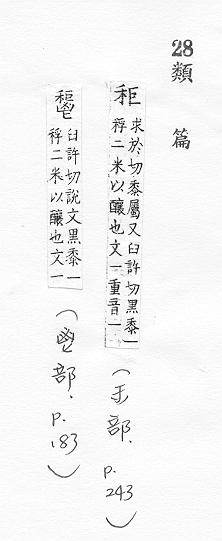 28 類篇
秬
求於切黍屬又臼許切黑黍一
稃二米以釀也文一重音一
(禾部. p. 243)
𩰤
臼許切說文黑黍一
稃二米以釀也文一
(鬯部. p. 183)